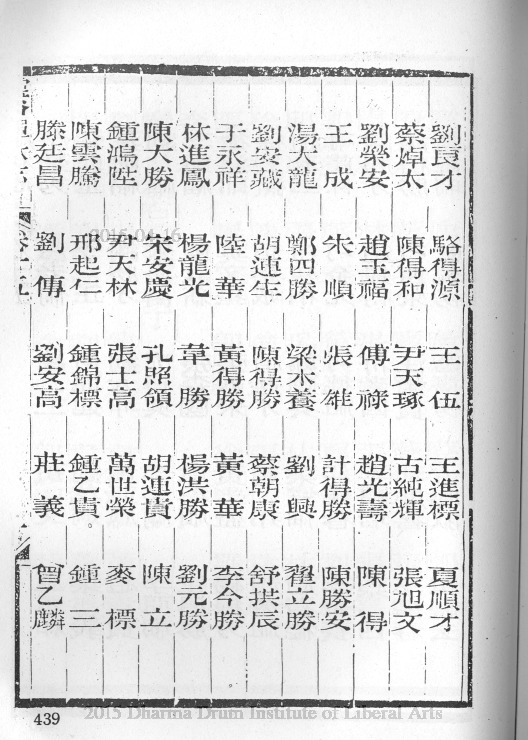 劉良才 駱得源 王伍 王進標 夏順才
蔡焯太 陳得和 尹天琢 古純輝 張旭文
劉榮安 趙玉福 傅祿 趙光壽 陳得
王成 朱順 張雄 計得勝 陳勝安
湯大龍 鄭四勝 梁木養 劉興 翟立勝
劉安藏 胡連生 陳得勝 蔡朝康 舒拱辰
于永祥 陸華 黃得勝 黃華 李今勝
林進鳳 楊龍光 韋勝 楊洪勝 劉元勝
陳大勝 宋安慶 孔照領 胡連貴 陳立
鍾鴻陞 尹天林 張士高 萬世榮 麥標
陳雲騰 邢起仁 鍾錦標 鍾乙貴。 鍾三
滕廷昌 劉傳 劉安高 莊義 曾乙麟
卷十五
439
2015 Dharma Drum Institute of Liberal Arts